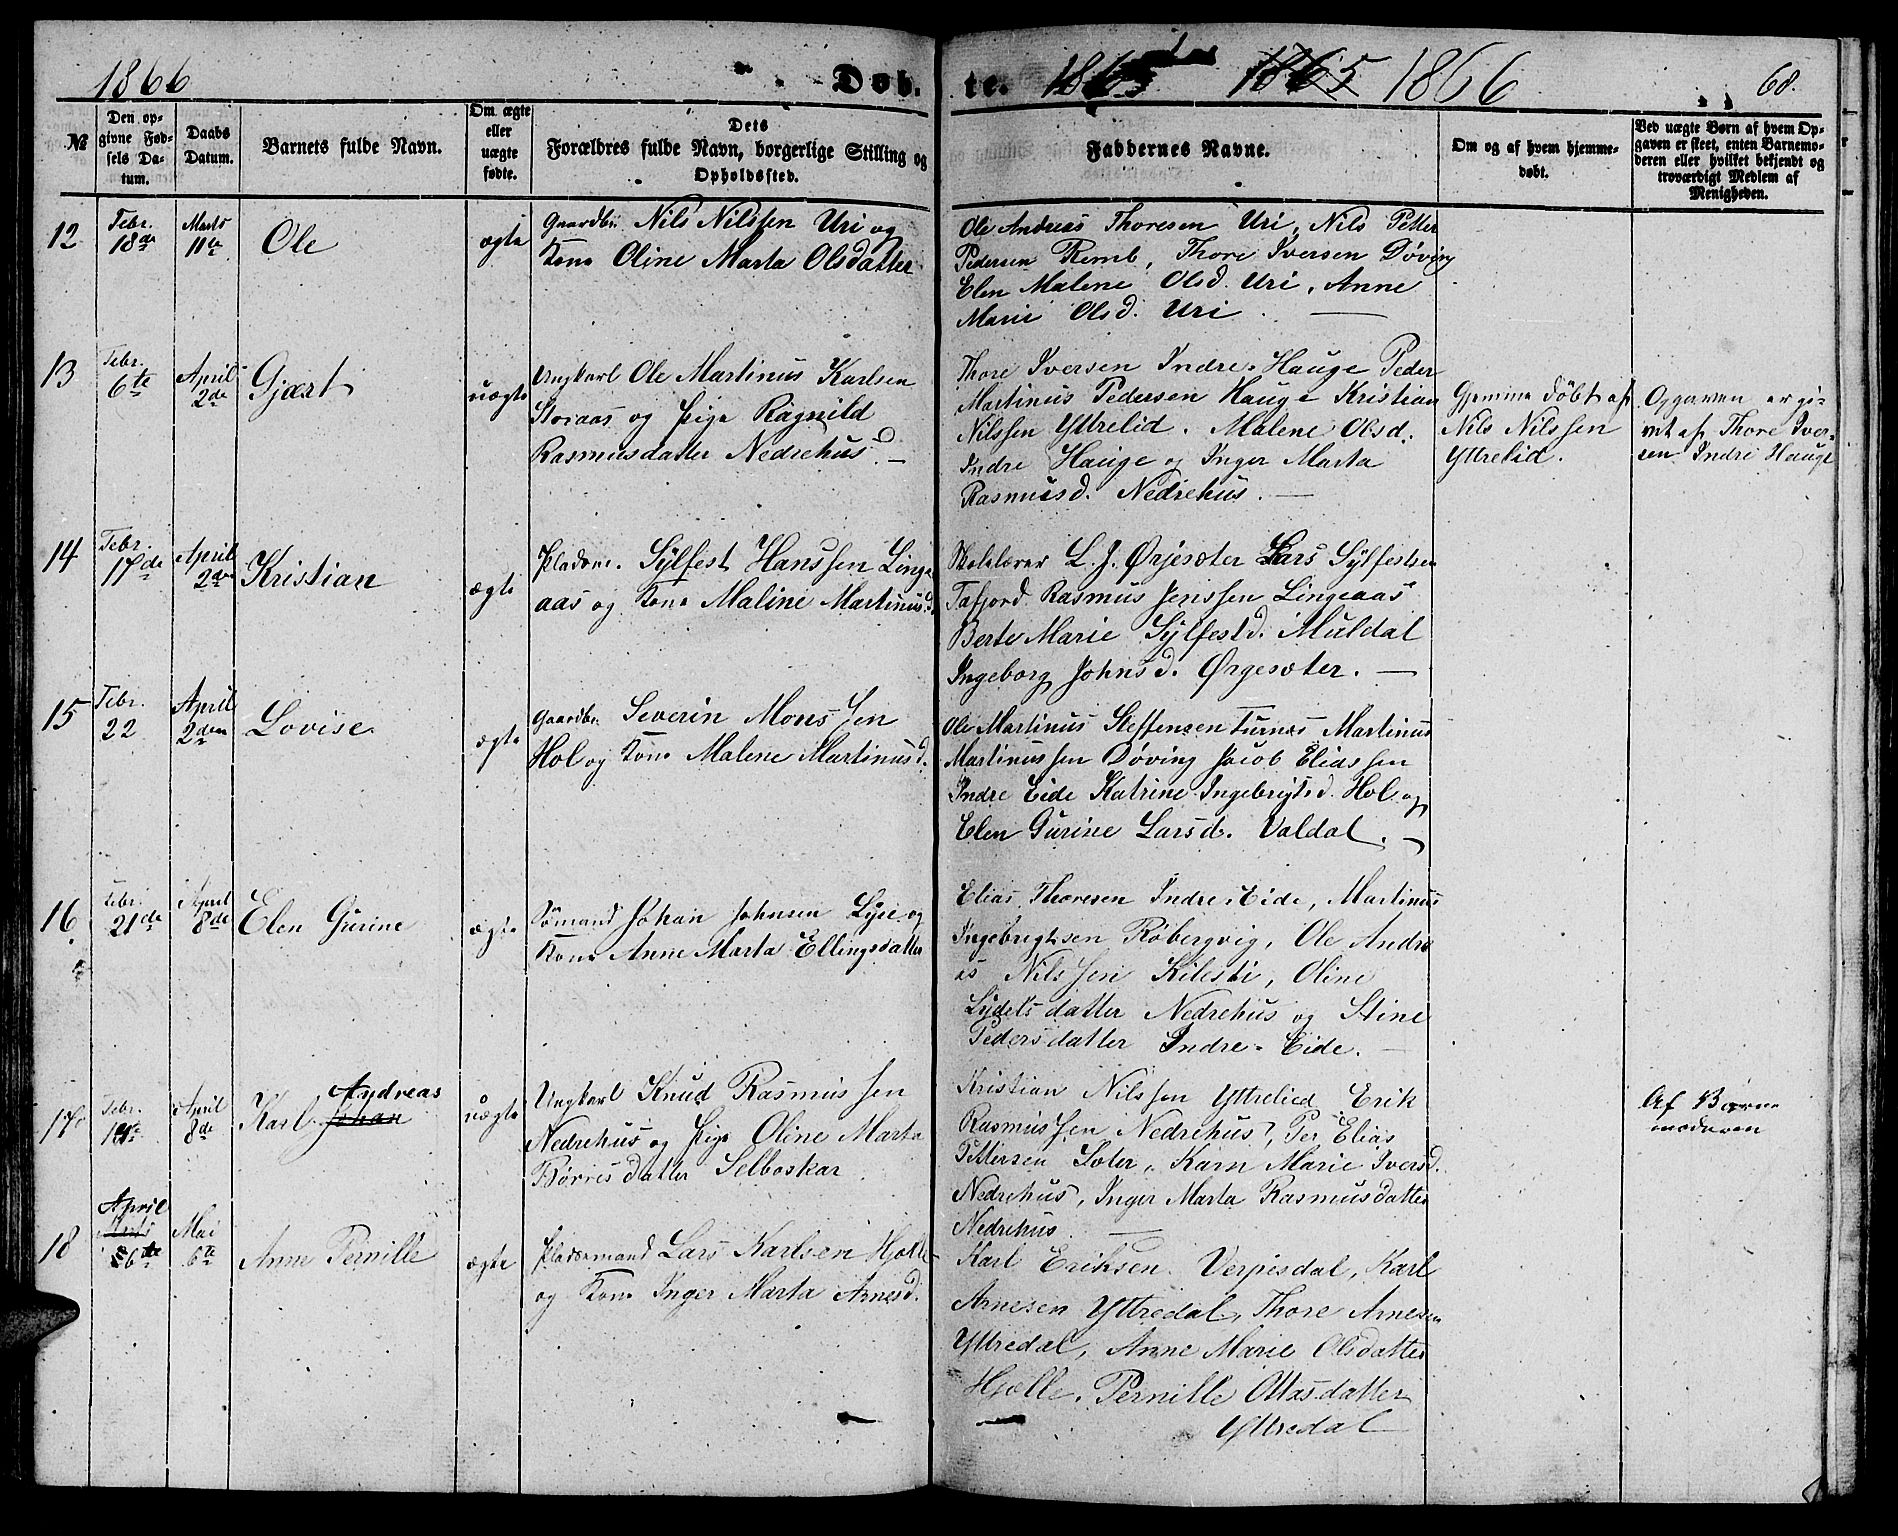 1866
Døb-
te. 1865 1865 1866
68.
№
Den op-
givne Fød-
sels Da-
tum.
Daabs
Datum.
Barnets fulde Navn.
Om ægte
eller
uægte
fødte.
Dets
Forældres fulde Navn, borgerlige Stilling og
Opholdssted.
Faddernes Navne.
Om og af hvem hjemme-
døbt.
Ved uægte Børn af hvem Op-
gaven er skeet, enten Barnemo-
deren eller hvilket bekjendt og
troværdigt Medlem af
Menigheden.
12
Febr.
18de
Marts
11te
Ole
ægte
Gaardbr. Nils Nilssen Uri og
Kone Oline Marta Olsdatter
Ole Andreas Thoresen Uri, Nils Petter
Pedersen Remb, Thore Iversen Døving
Elen Malene Olsd. Uri, Anne
Marie Olsd. Uri.
13
Febr.
6te
April
2de
Gjært
uægte
Ungkarl Ole Martinus Karlsen
Storaas og Pige Ragnild
Rasmusdatter Nedrehus.
Thore Iversen Indre-Hauge Peder
Martinus Pedersen Hauge Kristian
Nilssen Yttrelid. Malene Olsd.
Indre Hauge og Inger Marta
Rasmusd. Nedrehus.
Hjemme døbt af
Nils Nilssen
Yttrelid.
Opgaven er gi-
vet af Thore Iver-
sen Indre Hauge
14
Febr.
17de
April
2den
Kristian
ægte
Pladsm. Sylfest Hanssen Linge
aas og Kone Maline Martinusd.
Skolelærer L. J. Ørjesæter Lars Sylfestsen
Tafjord. Rasmus Jenssen Lingeaas
Berte Marie Sylfestd. Muldal
Ingeborg Johnsd. Ørgesæter.
15
Febr.
22
April
2den
Lovise
ægte
Gaardbr. Severin Monssen
Hol og Kone Malene Martinusd.
Ole Martinus Steffensen Furnes Martinus
Martinussen Døving Jacob Eliassen
Indre Eide Katrine Ingebrigtsd. Hol og
Elen Gurine Larsd. Valdal.
16
Febr.
21de
April
8de
Elen Gurine
ægte
Sømand Johan Johnsen Lyse og
Kone Anne Marta Ellingsdatter
Elias Thoresen Indre Eide, Martinus
Ingebrigtsen Røbergvig, Ole Andre
as Nilssen Kilesti, Oline
Sjdelsdatter Nedrehus og Stine
Pedersdatter Indre-Eide.
17
Febr.
April
8de
Andreas
Karl Johan
uægte
Ungkarl Knud Rasmussen
Nedrehus og Pige Oline Marta
Børresdatter Selboskar
Kristian Nilssen Yttrelied Erik
Rasmussen Nedrehus, Per Elias
Pettersen Sæter, Karn Marie Iversd.
Nedrehus, Inger Marta Rasmusdatter
Nedrehus.
Af Barne
moderen
18
April
Marts
6te
Mai
6te
Anne Pernille
ægte
Pladsemand Lars Karlsen Hjelle
og Kone Inger Marta Arnesd.
Karl Eriksen Verpesdal, Karl
Arnesen Yttredal, Thore Arnesen
Yttredal, Anne Marie Olsdatter
Hjelle, Pernille Ottasdatter
Yttredal